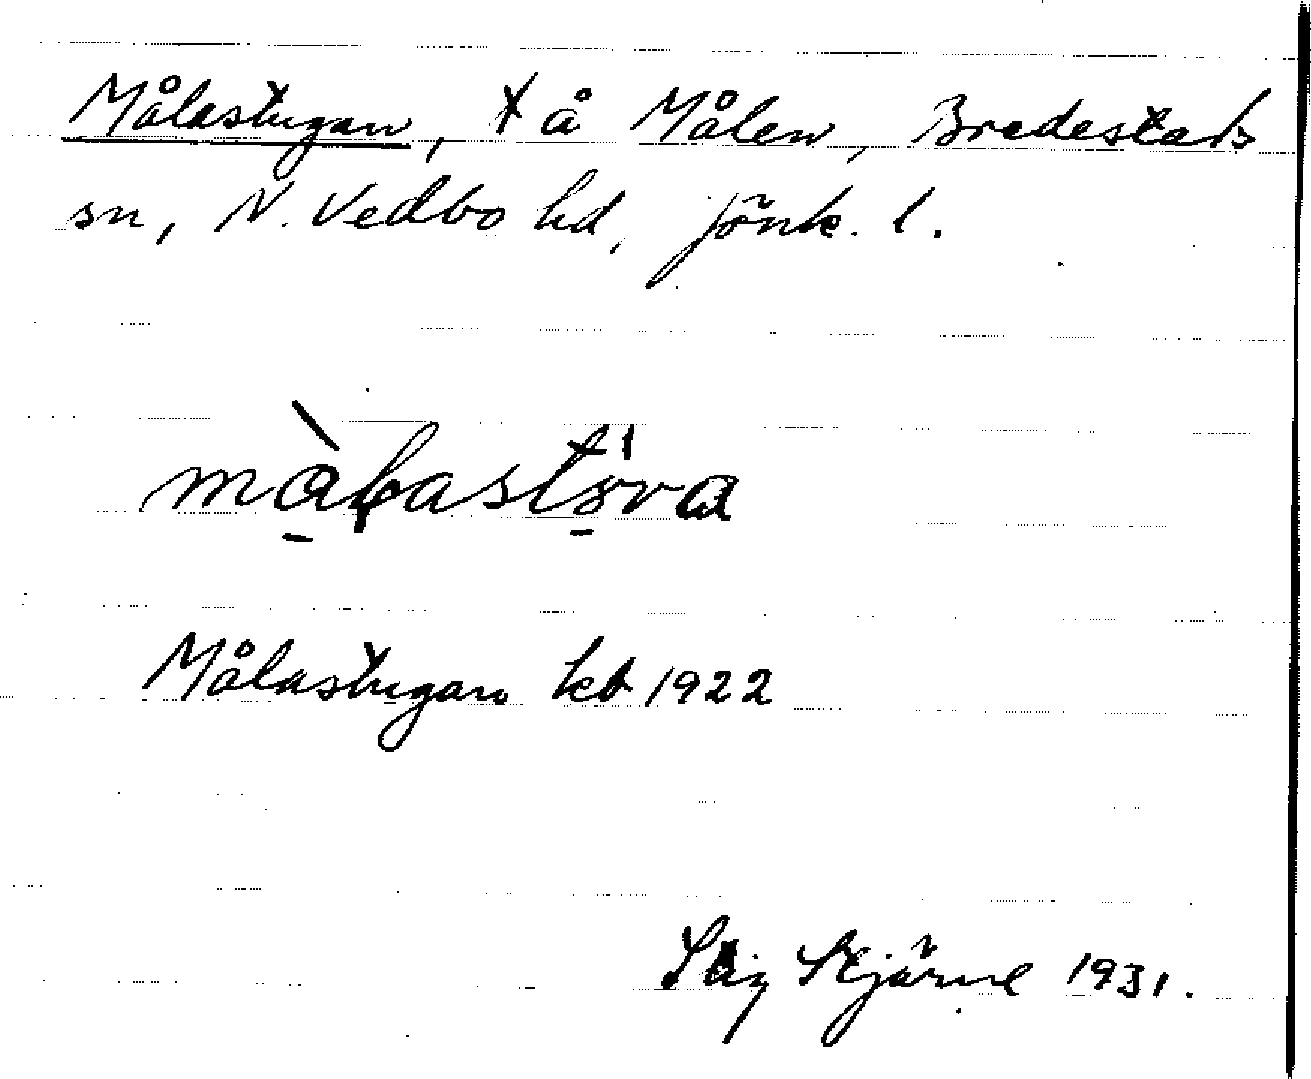 Målastugan, t å Målen, Bredestads
sn, N. Vedbo hd, Jönk. l.
må̀lastu̇va
Målastugan kb 1922
Stig Stjärne 1931.